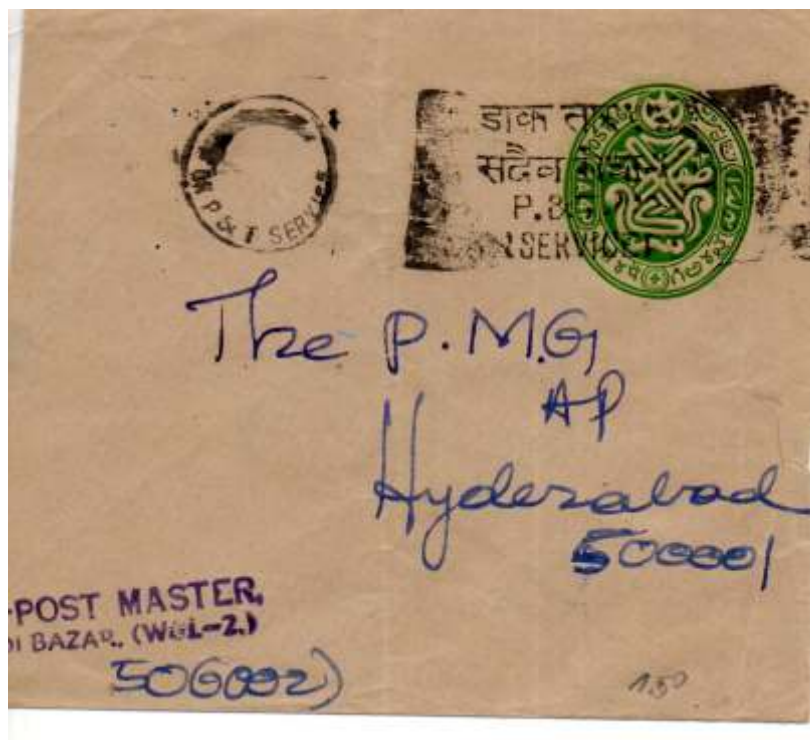 ON P & T SERVICE
डाक
सदैव
P.&T.
SERVICE
The P.M.G
AP
Hyderabad
500001
-POST MASTER,
DI BAZAR, (WGL-2.)
506002)
1.50